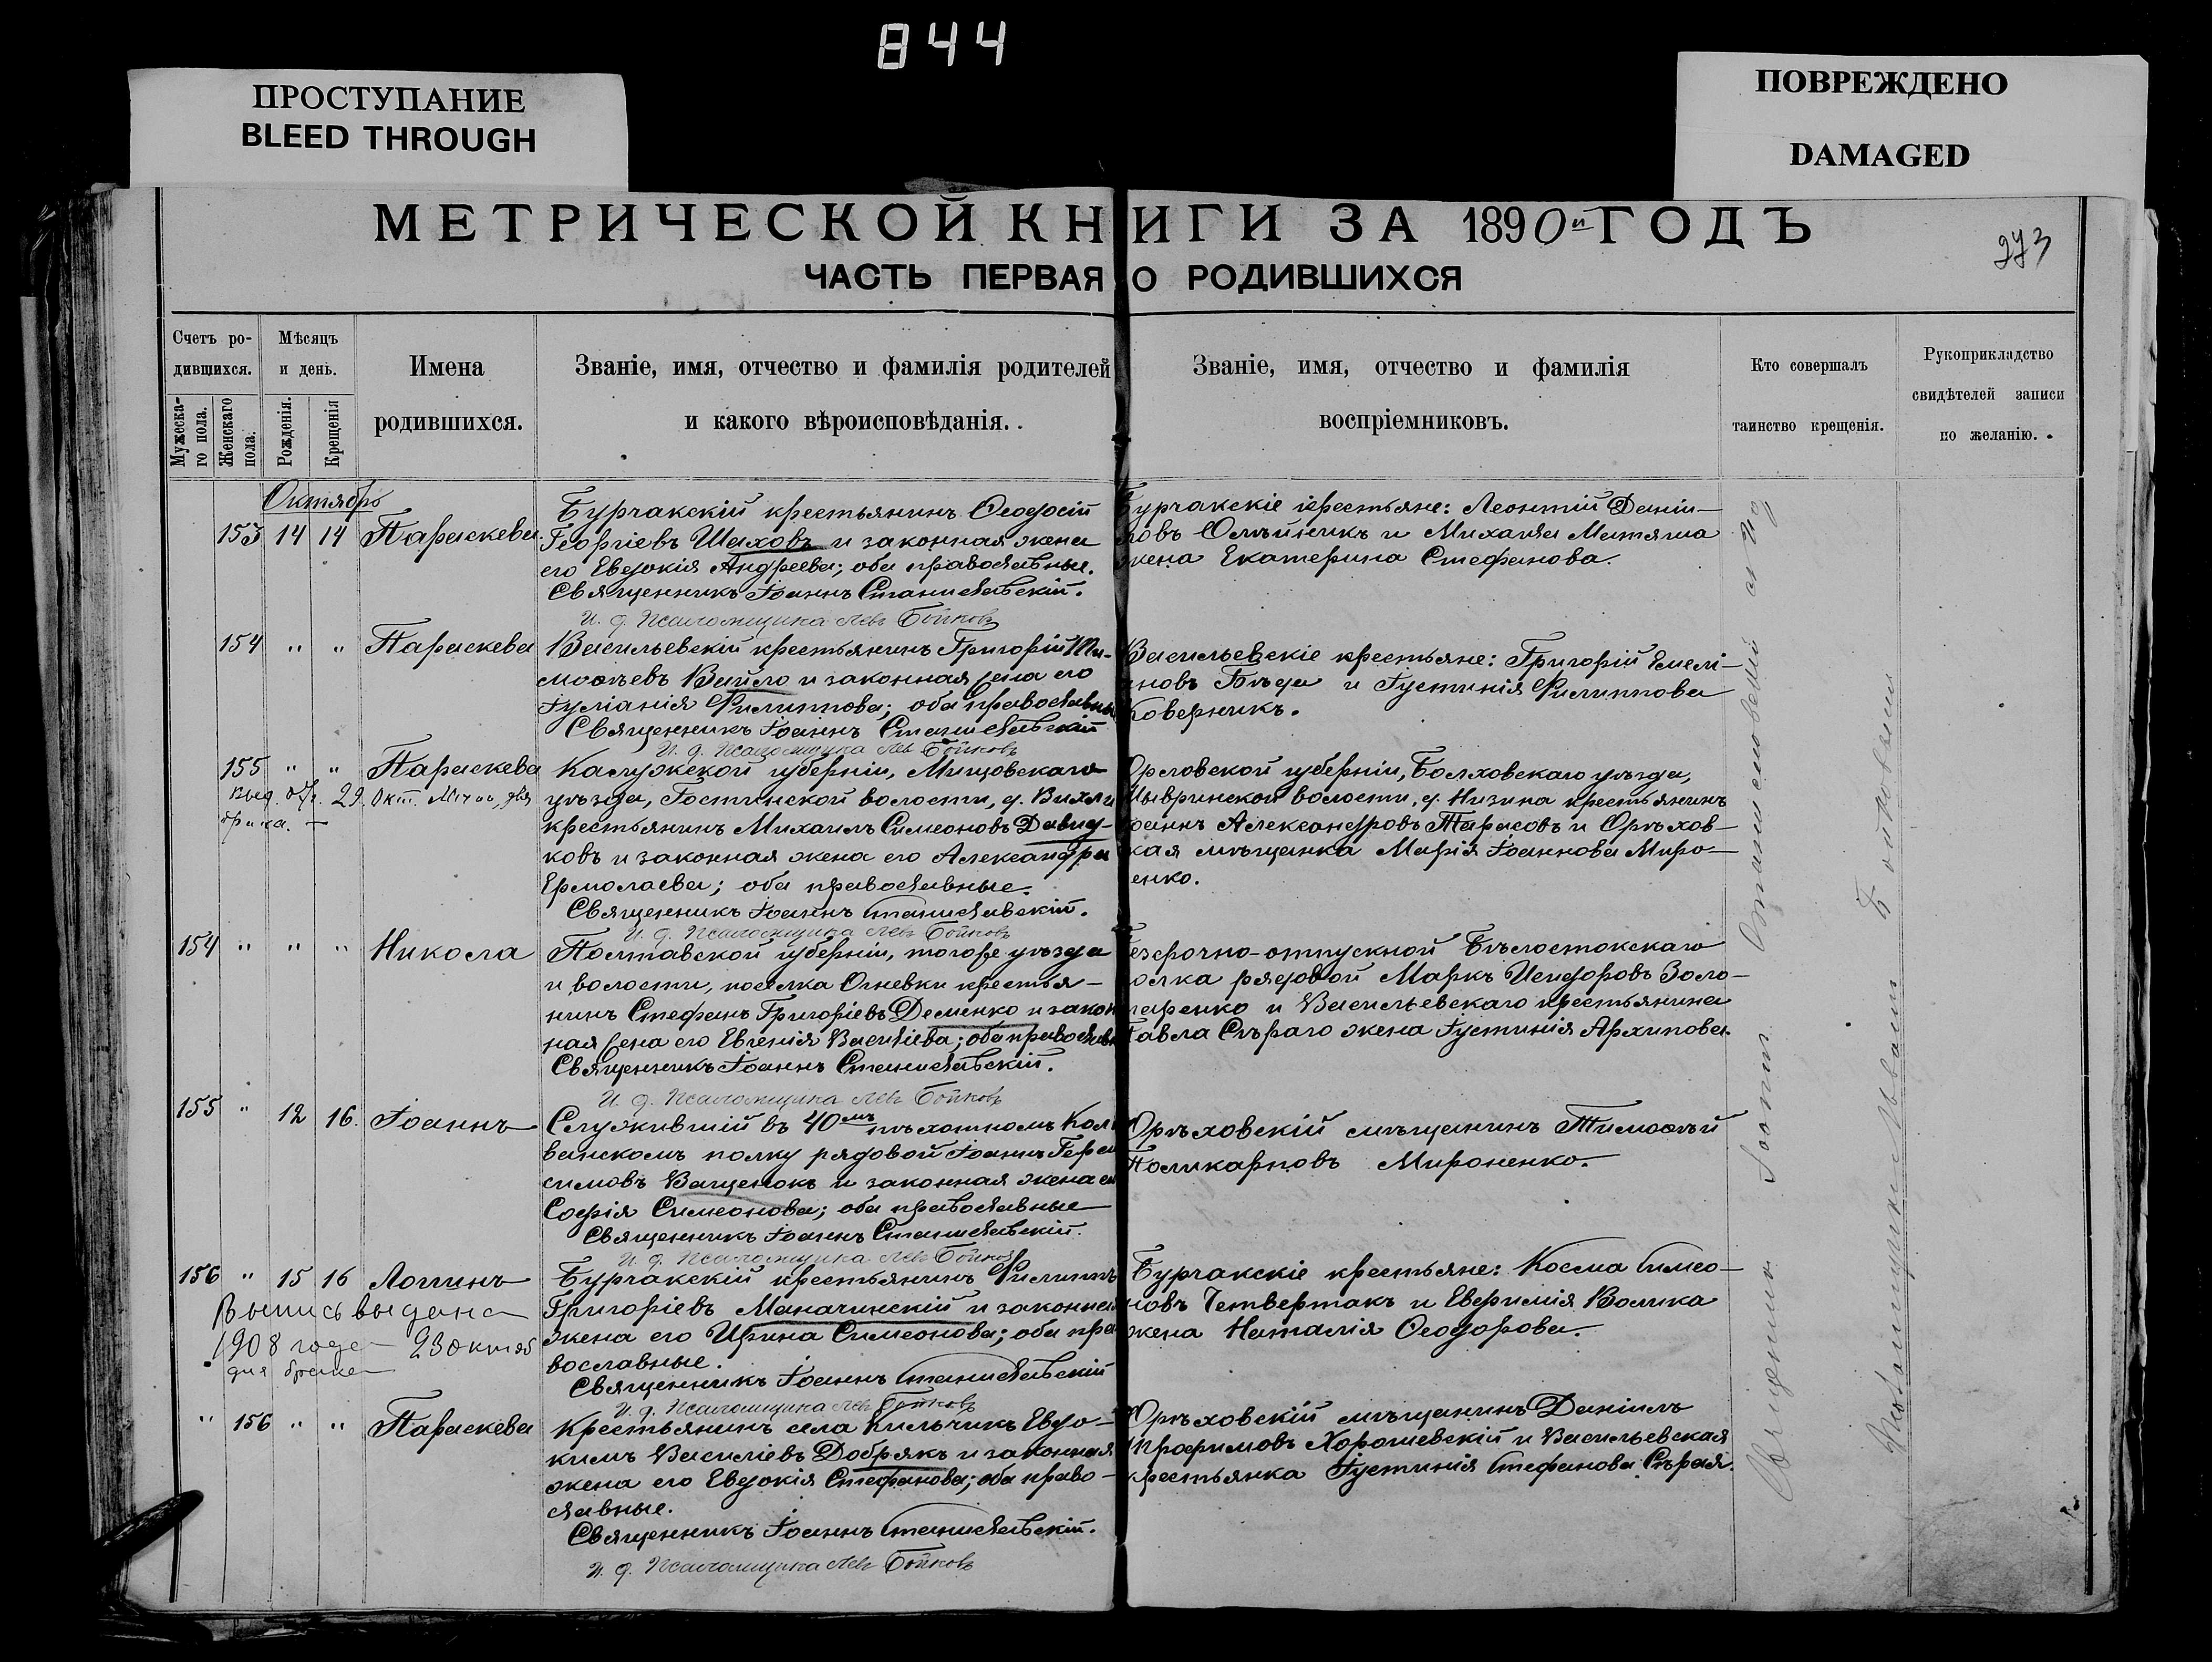 844
ПРОСТУПАНИЕ
BLEED THROUGH
ПОВРЕЖДЕНО
DAMAGED
МЕТРИЧЕСКОЙ КНИГИ ЗА 1890й ГОДЪ
273
ЧАСТЬ ПЕРВАЯ О РОДИВШИХСЯ
Счетъ ро-
дившихся.
Мужеска-
го пола.
Женскаго
пола.
Мѣсяцъ
и день.
Рожденія.
Крещенія
Имена
родившихся.
Званіе, имя, отчество и фамилія родителей
и какого вѣроисповѣданія.
Званіе, имя, отчество и фамилія
воспріемниковъ.
Кто совершалъ
таинство крещенія.
Рукоприкладство
свидѣтелей записи
по желанію.
Октябрь
153 14 14 Параскева
Бурчакскій крестьянинъ Ѳеодосій
Георгіевъ Шаховъ и законная жена
его Евдокія Андреева; оба православные.
Священникъ Іоаннъ Станиславскій.
И. д. Псаломщика Левъ Бойковъ
Бурчакскіе крестьяне: Леонтій Даніи-
ловъ Олѣйникъ и Михаила Матяша
жена Екатерина Стефанова.
154 " " Параскева
Васильевскій крестьянинъ Григорій Ти-
моѳеевъ Вайло и законная жена его
Іуліанія Филиппова; оба православны
Священникъ Іоаннъ Станиславскій
И. д. Псаломщика Левъ Бойковъ
Васильевскіе крестьяне: Григорій Емелі-
новъ Бѣда и Іустинія Филиппова
Коверникъ.
155 " " Параскева
29 Окт. для
брака.
Калужской губерніи, Мещовскаго
уѣзда, волости, д.
крестьянинъ Михаилъ Симеоновъ Давид-
ковъ и законная жена его Александра
Ермолаева; оба православные.
Священникъ Іоаннъ Станиславскій.
И. д. Псаломщика Левъ Бойковъ
Орловской губерніи, Болховскаго уѣзда,
волости, д. Низина крестьянинъ
Іоаннъ Александровъ Тарасовъ и Орѣхов-
кая мѣщанка Марія Іоаннова Миро-
енко.
154 " " " Никола
Полтавской губерніи, того же уѣзда
и волости, поселка Огневки крестья-
нинъ Стефанъ Григоріевъ Деменко и закон
ная жена его Евгенія Василіева; оба православн
Священникъ Іоаннъ Станиславскій.
И. д. Псаломщика Левъ Бойковъ
Безсрочно-отпускной Бѣлостокскаго
полка рядовой Маркъ Исидоровъ Золо-
таренко и Васильевскаго крестьянина
Павла Сѣраго жена Іустинія Архипова.
155 " 12 16. Іоаннъ
Служившій въ 40мъ пѣхотномъ Кол
ванскомъ полку рядовой Іоаннъ Гера
симовъ Ващенокъ и законная жена ег
Софія Симеонова; оба православные
Священникъ Іоаннъ Станиславскій.
И. д. Псаломщика Левъ Бойковъ
Орѣховскій мѣщанинъ Тимоѳей
Поликарповъ Мироненко.
156 " 15 16 Логинъ
Выпись выдана
1908 года 23 октяб
для брака
Бурчакскій крестьянинъ Филиппъ
Григоріевъ Маначинскій и законная
жена его Ирина Симеонова; оба пра
вославные.
Священникъ Іоаннъ Станиславскій
И. д. Псаломщика Левъ Бойковъ
Бурчакскіе крестьяне: Косма Симео-
новъ Четвертакъ и Евфимія Волика
жена Наталія Ѳеодорова.
" 156 " " Параскева
Крестьянинъ села Кильчикъ Евдо-
кимъ Василіевъ Добрякъ и законная
жена его Евдокія Стефанова; оба право-
славные.
Священникъ Іоаннъ Станиславскій.
И. д. Псаломщика Левъ Бойковъ
Орѣховскій мѣщанинъ Даніилъ
Трофимовъ Хорошевскій и Васильевская
крестьянка Іустинія Стефанова Сѣрая.
Священникъ Іоаннъ Станиславскій и И. д.
Псаломщика Бойковъ